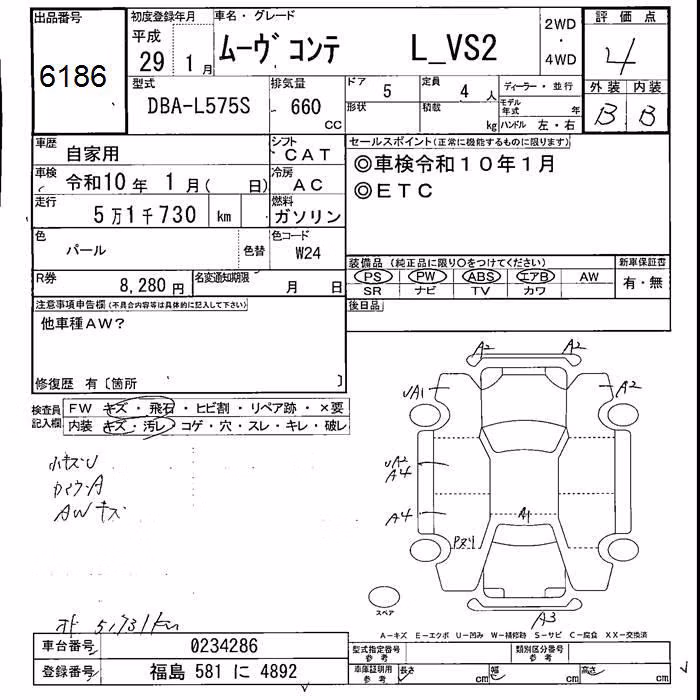 出品番号 初度登録年月 車名・グレード 2WD 評価点
6186 平成 29 1月 ムーヴ コンテ L_VS2 ・ 4WD 4
型式 排気量 ドア 定員 ディーラー・並行 外装 内装
DBA-L575S 660 CC 5 4 人 モデル年式 年 B B
形状 積載 kg ハンドル 左・右
車歴 自家用 シフト CAT セールスポイント(正常に機能するものに限ります)
車検 令和10年 1月( 日) 冷房 AC ◎車検令和10年1月
走行 5万1千730 km 燃料 ガソリン ◎ETC
色 パール 色替 色コード W24
装備品(純正品に限り○をつけてください) 新車保証書
R券 8,280円 名変通知期限 月 日 PS PW ABS エアB AW 有・無
SR ナビ TV カワ
注意事項申告欄(不具合内容等は具体的に記入して下さい) 後日品
他車種AW?
修復歴 有〔箇所 〕
検査員記入欄 FW キズ・飛石・ヒビ割・リペア跡・×要
内装 キズ・汚レ・コゲ・穴・スレ・キレ・破レ
A2 A2
UA1 A2
小キズU
UA2
A4
AWキズ
A4 A1
スペア
A3
A-キズ E-エクボ U-凹み W-補修跡 S-サビ C-腐食 XX-交換済
5,731km
車台番号 0234286 型式指定番号 参考 類別区分番号 参考
登録番号 福島 581 に 4892 車庫証明用 参考 長さ cm 幅 cm 高さ cm